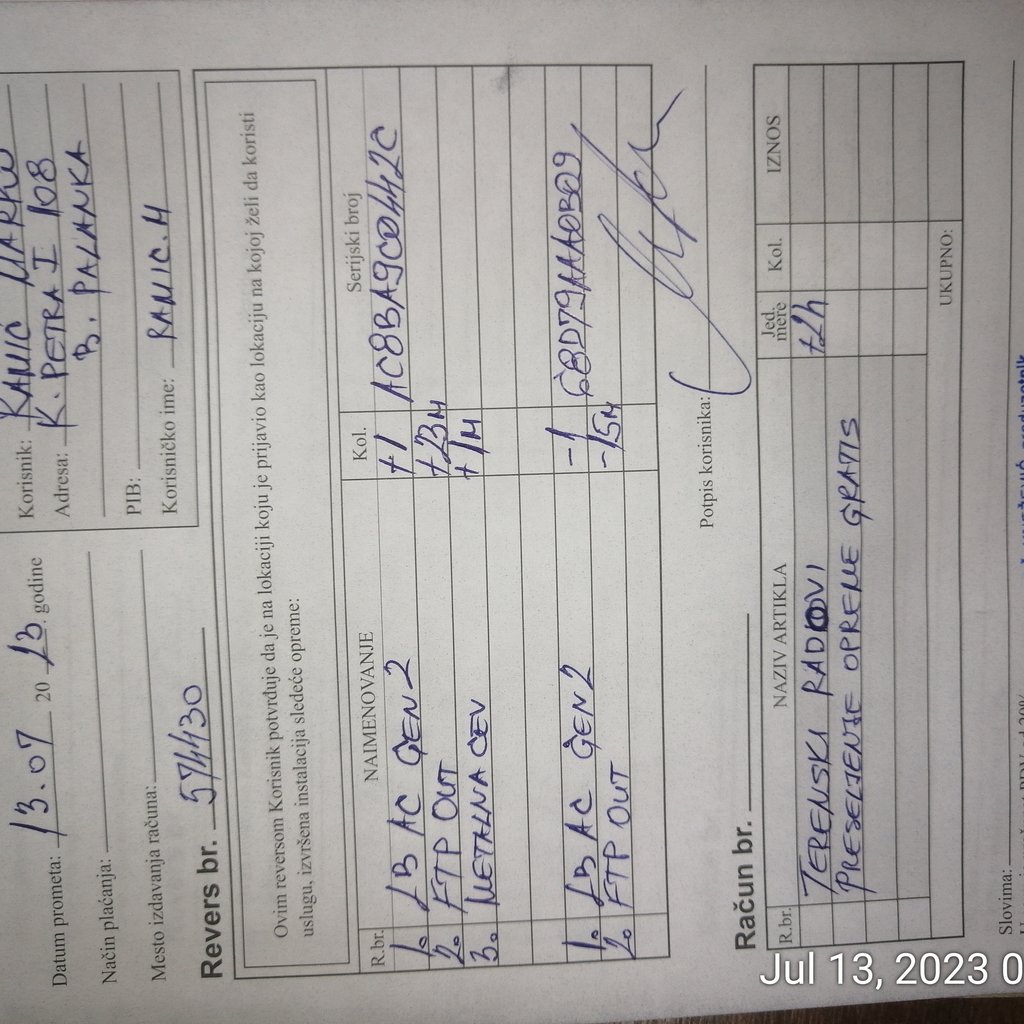 Datum prometa: 13.07 20 23. godine
Način plaćanja:
Mesto izdavanja računa:
Korisnik: RAMIĆ MARKO
Adresa: K. PETRA I 108
B. PALANKA
PIB:
Korisničko ime: RAMIC.M
Revers br. 574430
Ovim reversom Korisnik potvrđuje da je na lokaciji koju je prijavio kao lokaciju na kojoj želi da koristi
uslugu, izvršena instalacija sledeće opreme:
R.br. NAIMENOVANJE Kol. Serijski broj
1. LB AC GEN 2 +1 AC8BA9C0442C
2. FTP OUT +23M
3. METALNA CEV +1M
1. LB AC GEN 2 -1 68D79AAA0B09
2. FTP OUT -15M
Potpis korisnika:
Račun br.
R.br. NAZIV ARTIKLA Jed. mere Kol. IZNOS
TERENSKI RADOVI +2h
PRESELJENJE OPREME GRATIS
UKUPNO:
Slovima:
Jul 13, 2023